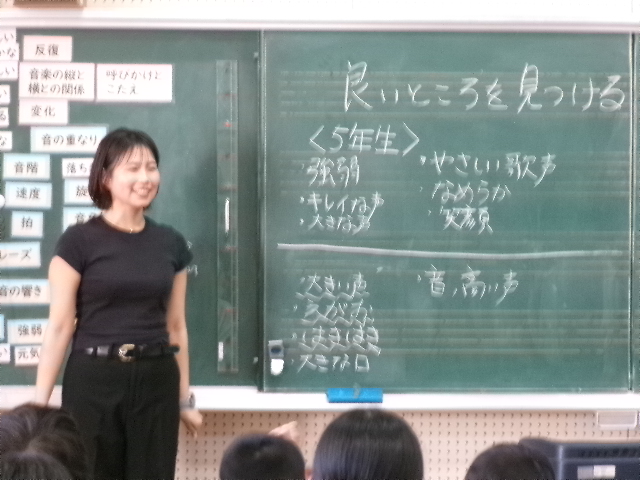 反復
音楽の縦と
横との関係
呼びかけと
こたえ
変化
音の重なり
音階
速度
拍
音の響き
強弱
良いところを見つける
<5年生>
・強弱
・キレイな声
・大きな声
・やさしい歌声
・なめらか
・笑顔
・大きい声
・えがお
・はきはき
・大きな口
・音、高い声